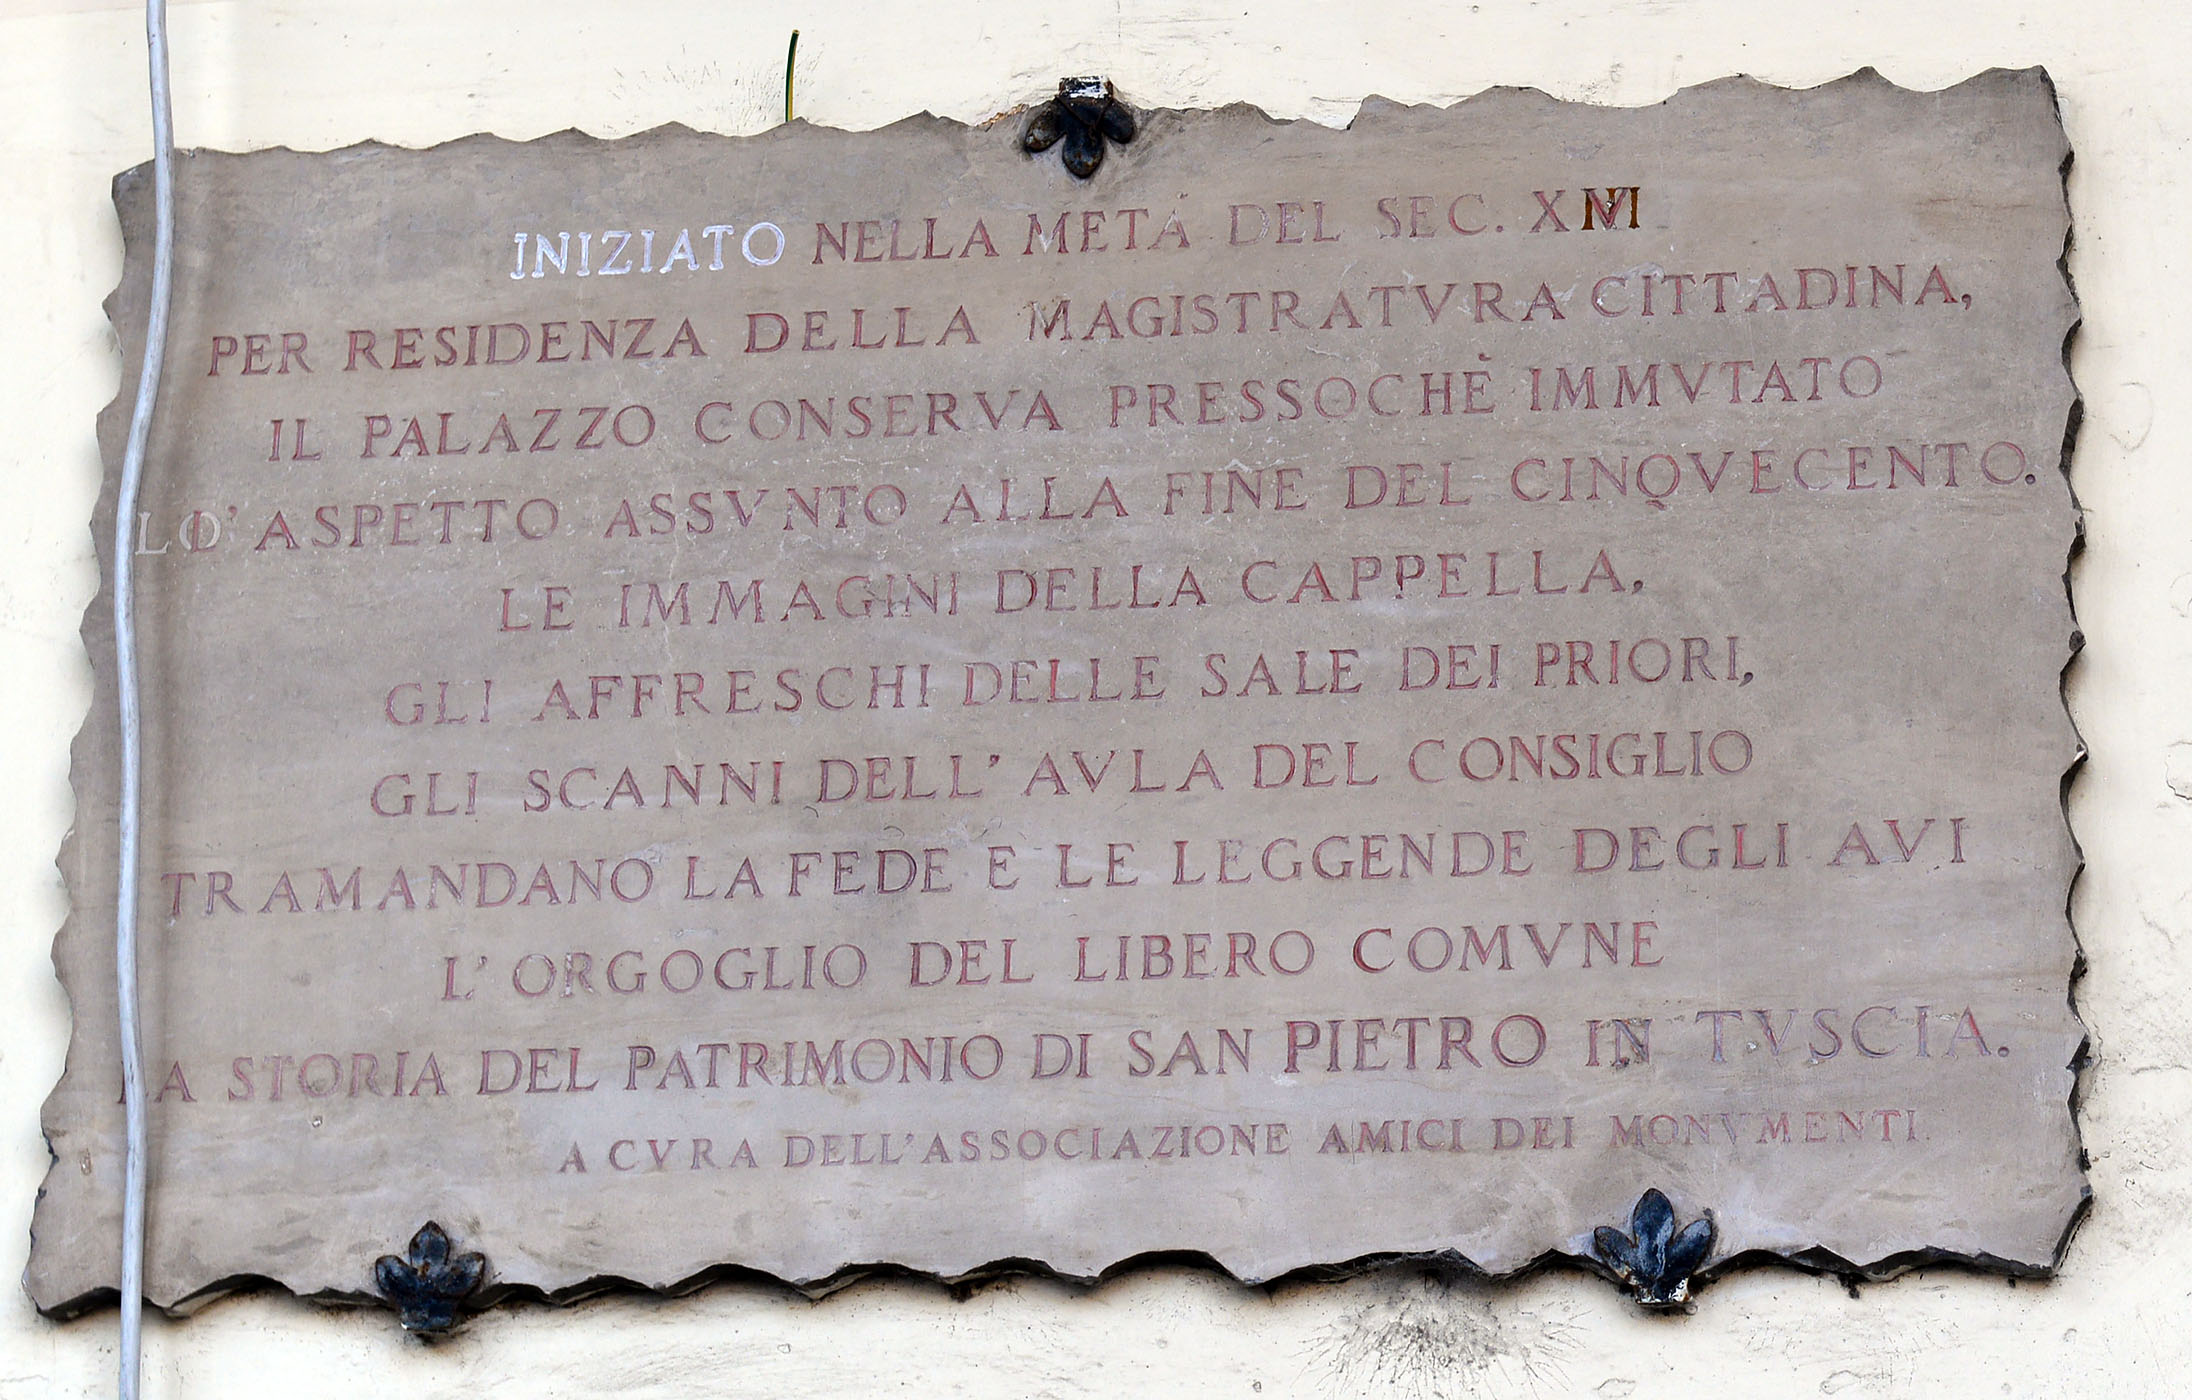 INIZIATO NELLA METÀ DEL SEC. XVI
PER RESIDENZA DELLA MAGISTRATVRA CITTADINA,
IL PALAZZO CONSERVA PRESSOCHÈ IMMVTATO
L'ASPETTO ASSVNTO ALLA FINE DEL CINQVECENTO.
LE IMMAGINI DELLA CAPPELLA,
GLI AFFRESCHI DELLE SALE DEI PRIORI,
GLI SCANNI DELL'AVLA DEL CONSIGLIO
TRAMANDANO LA FEDE E LE LEGGENDE DEGLI AVI
L'ORGOGLIO DEL LIBERO COMVNE
LA STORIA DEL PATRIMONIO DI SAN PIETRO IN TVSCIA.
A CVRA DELL'ASSOCIAZIONE AMICI DEI MONVMENTI.